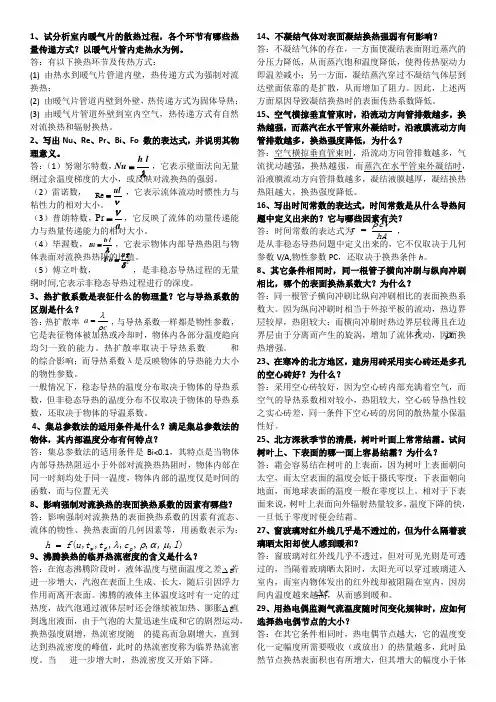 1、试分析室内暖气片的散热过程，各个环节有哪些热
量传递方式？以暖气片管内走热水为例。
答：有以下换热环节及传热方式：
(1) 由热水到暖气片管道内壁，热传递方式为强制对流
换热；
(2) 由暖气片管道内壁到外壁，热传递方式为固体导热；
(3) 由暖气片管道外壁到室内空气，热传递方式有自然
对流换热和辐射换热。
2、写出Nu、Re、Pr、Bi、Fo 数的表达式，并说明其物
理意义。
答：（1）努谢尔特数，Nu = hl/λ，它表示壁面法向无量
纲过余温度梯度的大小，或反映对流换热的强弱。
（2）雷诺数， Re = ul/ν ，它表示流体流动时惯性力与
粘性力的相对大小。
（3）普朗特数，Pr = ν/a，它反映了流体的动量传递能
力与热量传递能力的相对大小。
（4）毕渥数， Bi = hl/λ ，它表示物体内部导热热阻与物
体表面对流换热热阻的比值。
（5）傅立叶数， ，是非稳态导热过程的无量
纲时间,它表示非稳态导热过程进行的深度。
3、热扩散系数是表征什么的物理量？它与导热系数的
区别是什么？
答：热扩散率 a = λ/ρc ,与导热系数一样都是物性参数，
它是表征物体被加热或冷却时，物体内各部分温度趋向
均匀一致的能力。热扩散率取决于导热系数 和
的综合影响；而导热系数λ是反映物体的导热能力大小
的物性参数。
一般情况下，稳态导热的温度分布取决于物体的导热系
数，但非稳态导热的温度分布不仅取决于物体的导热系
数，还取决于物体的导温系数。
4、集总参数法的适用条件是什么？满足集总参数法的
物体，其内部温度分布有何特点？
答：集总参数法的适用条件是 Bi<0.1，其特点是当物体
内部导热热阻远小于外部对流换热热阻时，物体内部在
同一时刻均处于同一温度，物体内部的温度仅是时间的
函数，而与位置无关
8、影响强制对流换热的表面换热系数的因素有哪些？
答：影响强制对流换热的表面换热系数的因素有流态、
流体的物性、换热表面的几何因素等，用函数表示为：
h = f(u,tw,tf,λ,cp,ρ,α,μ,l)
9、沸腾换热的临界热流密度的含义是什么？
答：在泡态沸腾阶段时，液体温度与壁面温度之差 若
进一步增大，汽泡在表面上生成、长大，随后引因浮力
作用而离开表面。沸腾的液体主体温度这时有一定的过
热度，故汽泡通过液体层时还会继续被加热、膨胀，直
到逸出液面，由于气泡的大量迅速生成和它的剧烈运动，
换热强度剧增，热流密度随 的提高而急剧增大，直到
达到热流密度的峰值，此时的热流密度称为临界热流密
度。当 进一步增大时，热流密度又开始下降。
14、不凝结气体对表面凝结换热强弱有何影响？
答：不凝结气体的存在，一方面使凝结表面附近蒸汽的
分压力降低，从而蒸汽饱和温度降低，使得传热驱动力
即温差减小；另一方面，凝结蒸汽穿过不凝结气体层到
达壁面依靠的是扩散，从而增加了阻力。因此，上述两
方面原因导致凝结换热时的表面传热系数降低。
15、空气横掠垂直管束时，沿流动方向管排数越多，换
热越强，而蒸汽在水平管束外凝结时，沿液膜流动方向
管排数越多，换热强度降低，为什么？
答：空气横掠垂直管束时，沿流动方向管排数越多，气
流扰动越强，换热越强，而蒸汽在水平管束外凝结时，
沿液膜流动方向管排数越多，凝结液膜越厚，凝结换热
热阻越大，换热强度降低。
16、写出时间常数的表达式，时间常数是从什么导热问
题中定义出来的？它与哪些因素有关？
答：时间常数的表达式为 ，
是从非稳态导热问题中定义出来的，它不仅取决于几何
参数 V/A,物性参数 PC，还取决于换热条件 h。
8、其它条件相同时，同一根管子横向冲刷与纵向冲刷
相比，哪个的表面换热系数大？为什么？
答：同一根管子横向冲刷比纵向冲刷相比的表面换热系
数大。因为纵向冲刷时相当于外掠平板的流动，热边界
层较厚，热阻较大；而横向冲刷时热边界层较薄且在边
界层由于分离而产生的旋涡，增加了流体扰动，因而换
热增强。
23、在寒冷的北方地区，建房用砖采用实心砖还是多孔
的空心砖好？为什么？
答：采用空心砖较好，因为空心砖内部充满着空气，而
空气的导热系数相对较小，热阻较大，空心砖导热性较
之实心砖差，同一条件下空心砖的房间的散热量小保温
性好。
25、北方深秋季节的清晨，树叶叶面上常常结霜。试问
树叶上、下表面的哪一面上容易结霜？为什么？
答：霜会容易结在树叶的上表面，因为树叶上表面朝向
太空，而太空表面的温度会低于摄氏零度；下表面朝向
地面，而地球表面的温度一般在零度以上。相对于下表
面来说，树叶上表面向外辐射热量较多，温度下降的快，
一旦低于零度时便会结霜。
27、窗玻璃对红外线几乎是不透过的，但为什么隔着玻
璃晒太阳却使人感到暖和？
答：窗玻璃对红外线几乎不透过，但对可见光则是可透
过的，当隔着玻璃晒太阳时，太阳光可以穿过玻璃进入
室内，而室内物体发出的红外线却被阻隔在室内，因房
间内温度越来越高，从而感到暖和。
29、用热电偶监测气流温度随时间变化规律时，应如何
选择热电偶节点的大小？
答：在其它条件相同时，热电偶节点越大，它的温度变
化一定幅度所需要吸收（或放出）的热量越多，此时虽
然节点换热表面积也有所增大，但其增大的幅度小于体